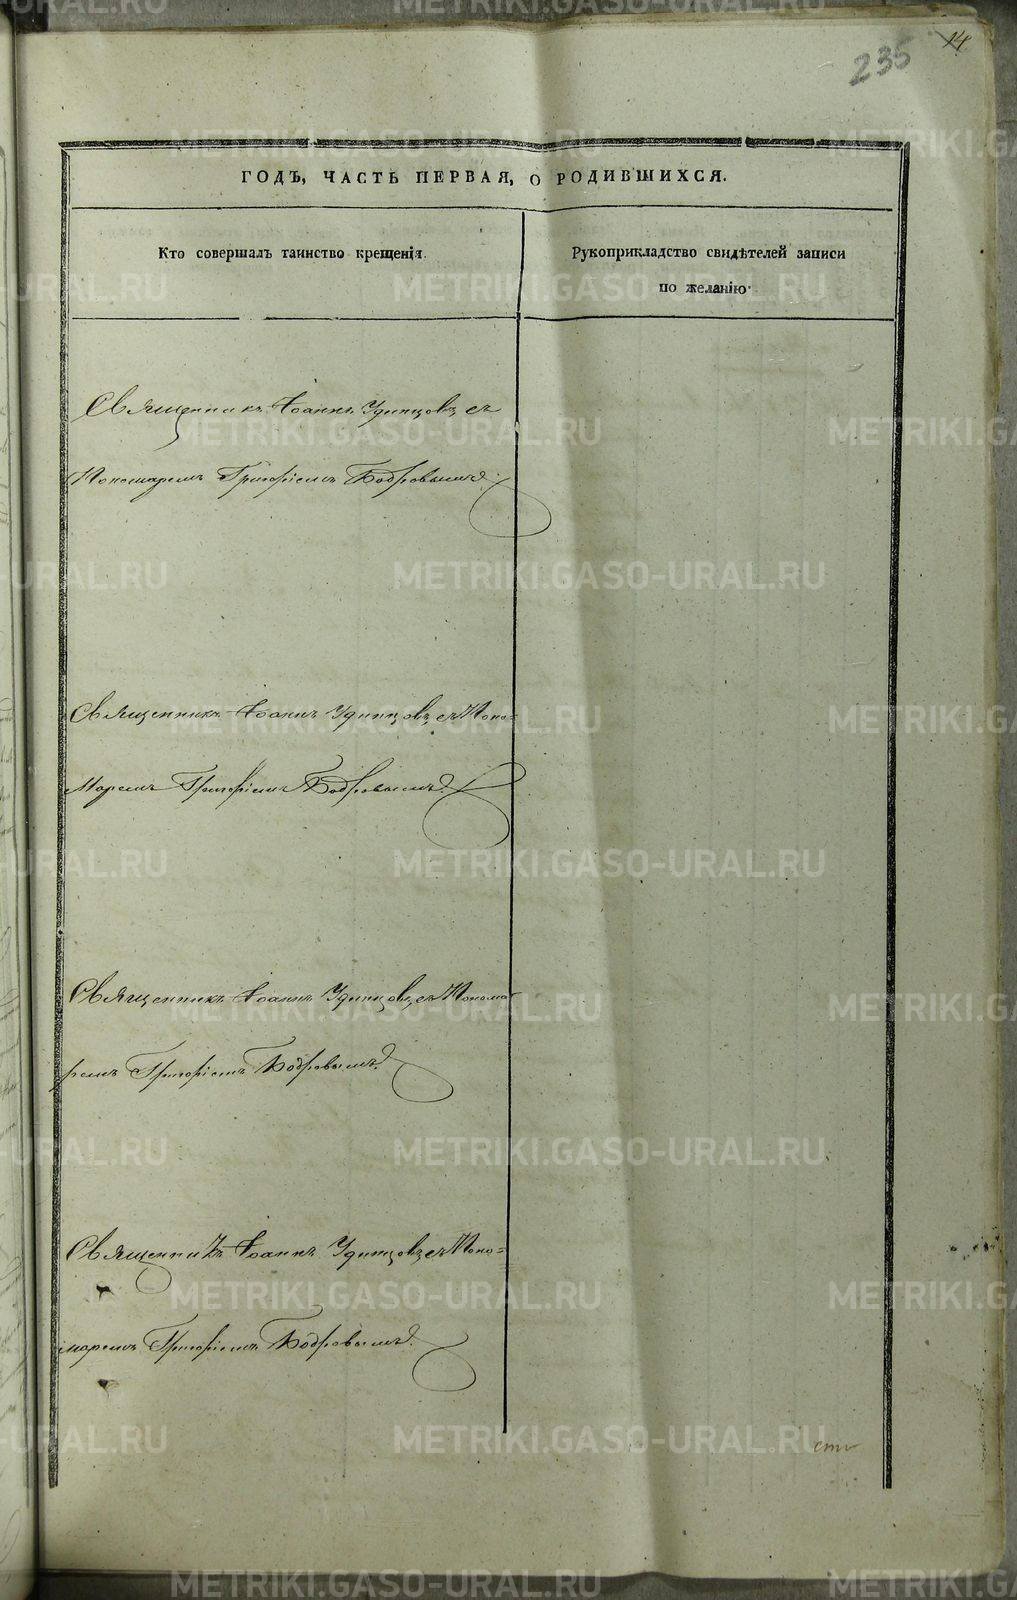 235 14
ГОДЪ, ЧАСТЬ ПЕРВАЯ, О РОДИВШИХСЯ.
Кто совершалъ таинство крещенія.
Рукоприкладство свидѣтелей записи
по желанію.
Священникъ Іоаннъ Удинцовъ, съ
Пономаремъ Григоріемъ Бодровымъ.
Священникъ Іоаннъ Удинцовъ, съ Поно=
маремъ Григоріемъ Бодровымъ.
Священникъ Іоаннъ Удинцовъ, съ Понома-
ремъ Григоріемъ Бодровымъ.
Священникъ Іоаннъ Удинцовъ, съ Поно=
маремъ Григоріемъ Бодровымъ.
METRIKI.GASO-URAL.RU